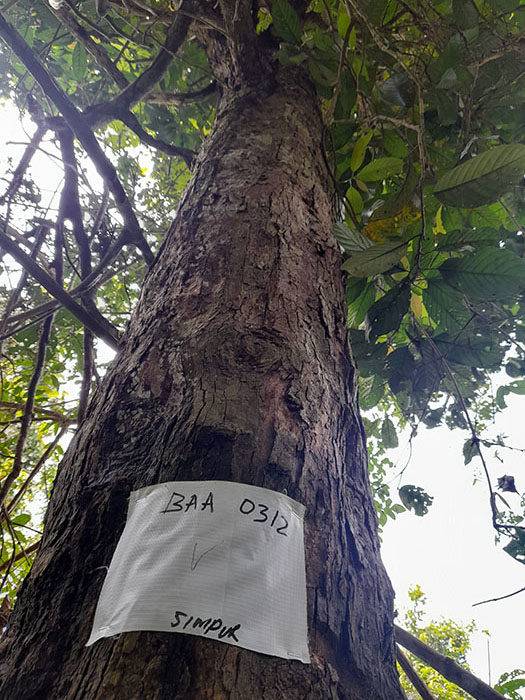 BAA 0312
V
SIMPUR